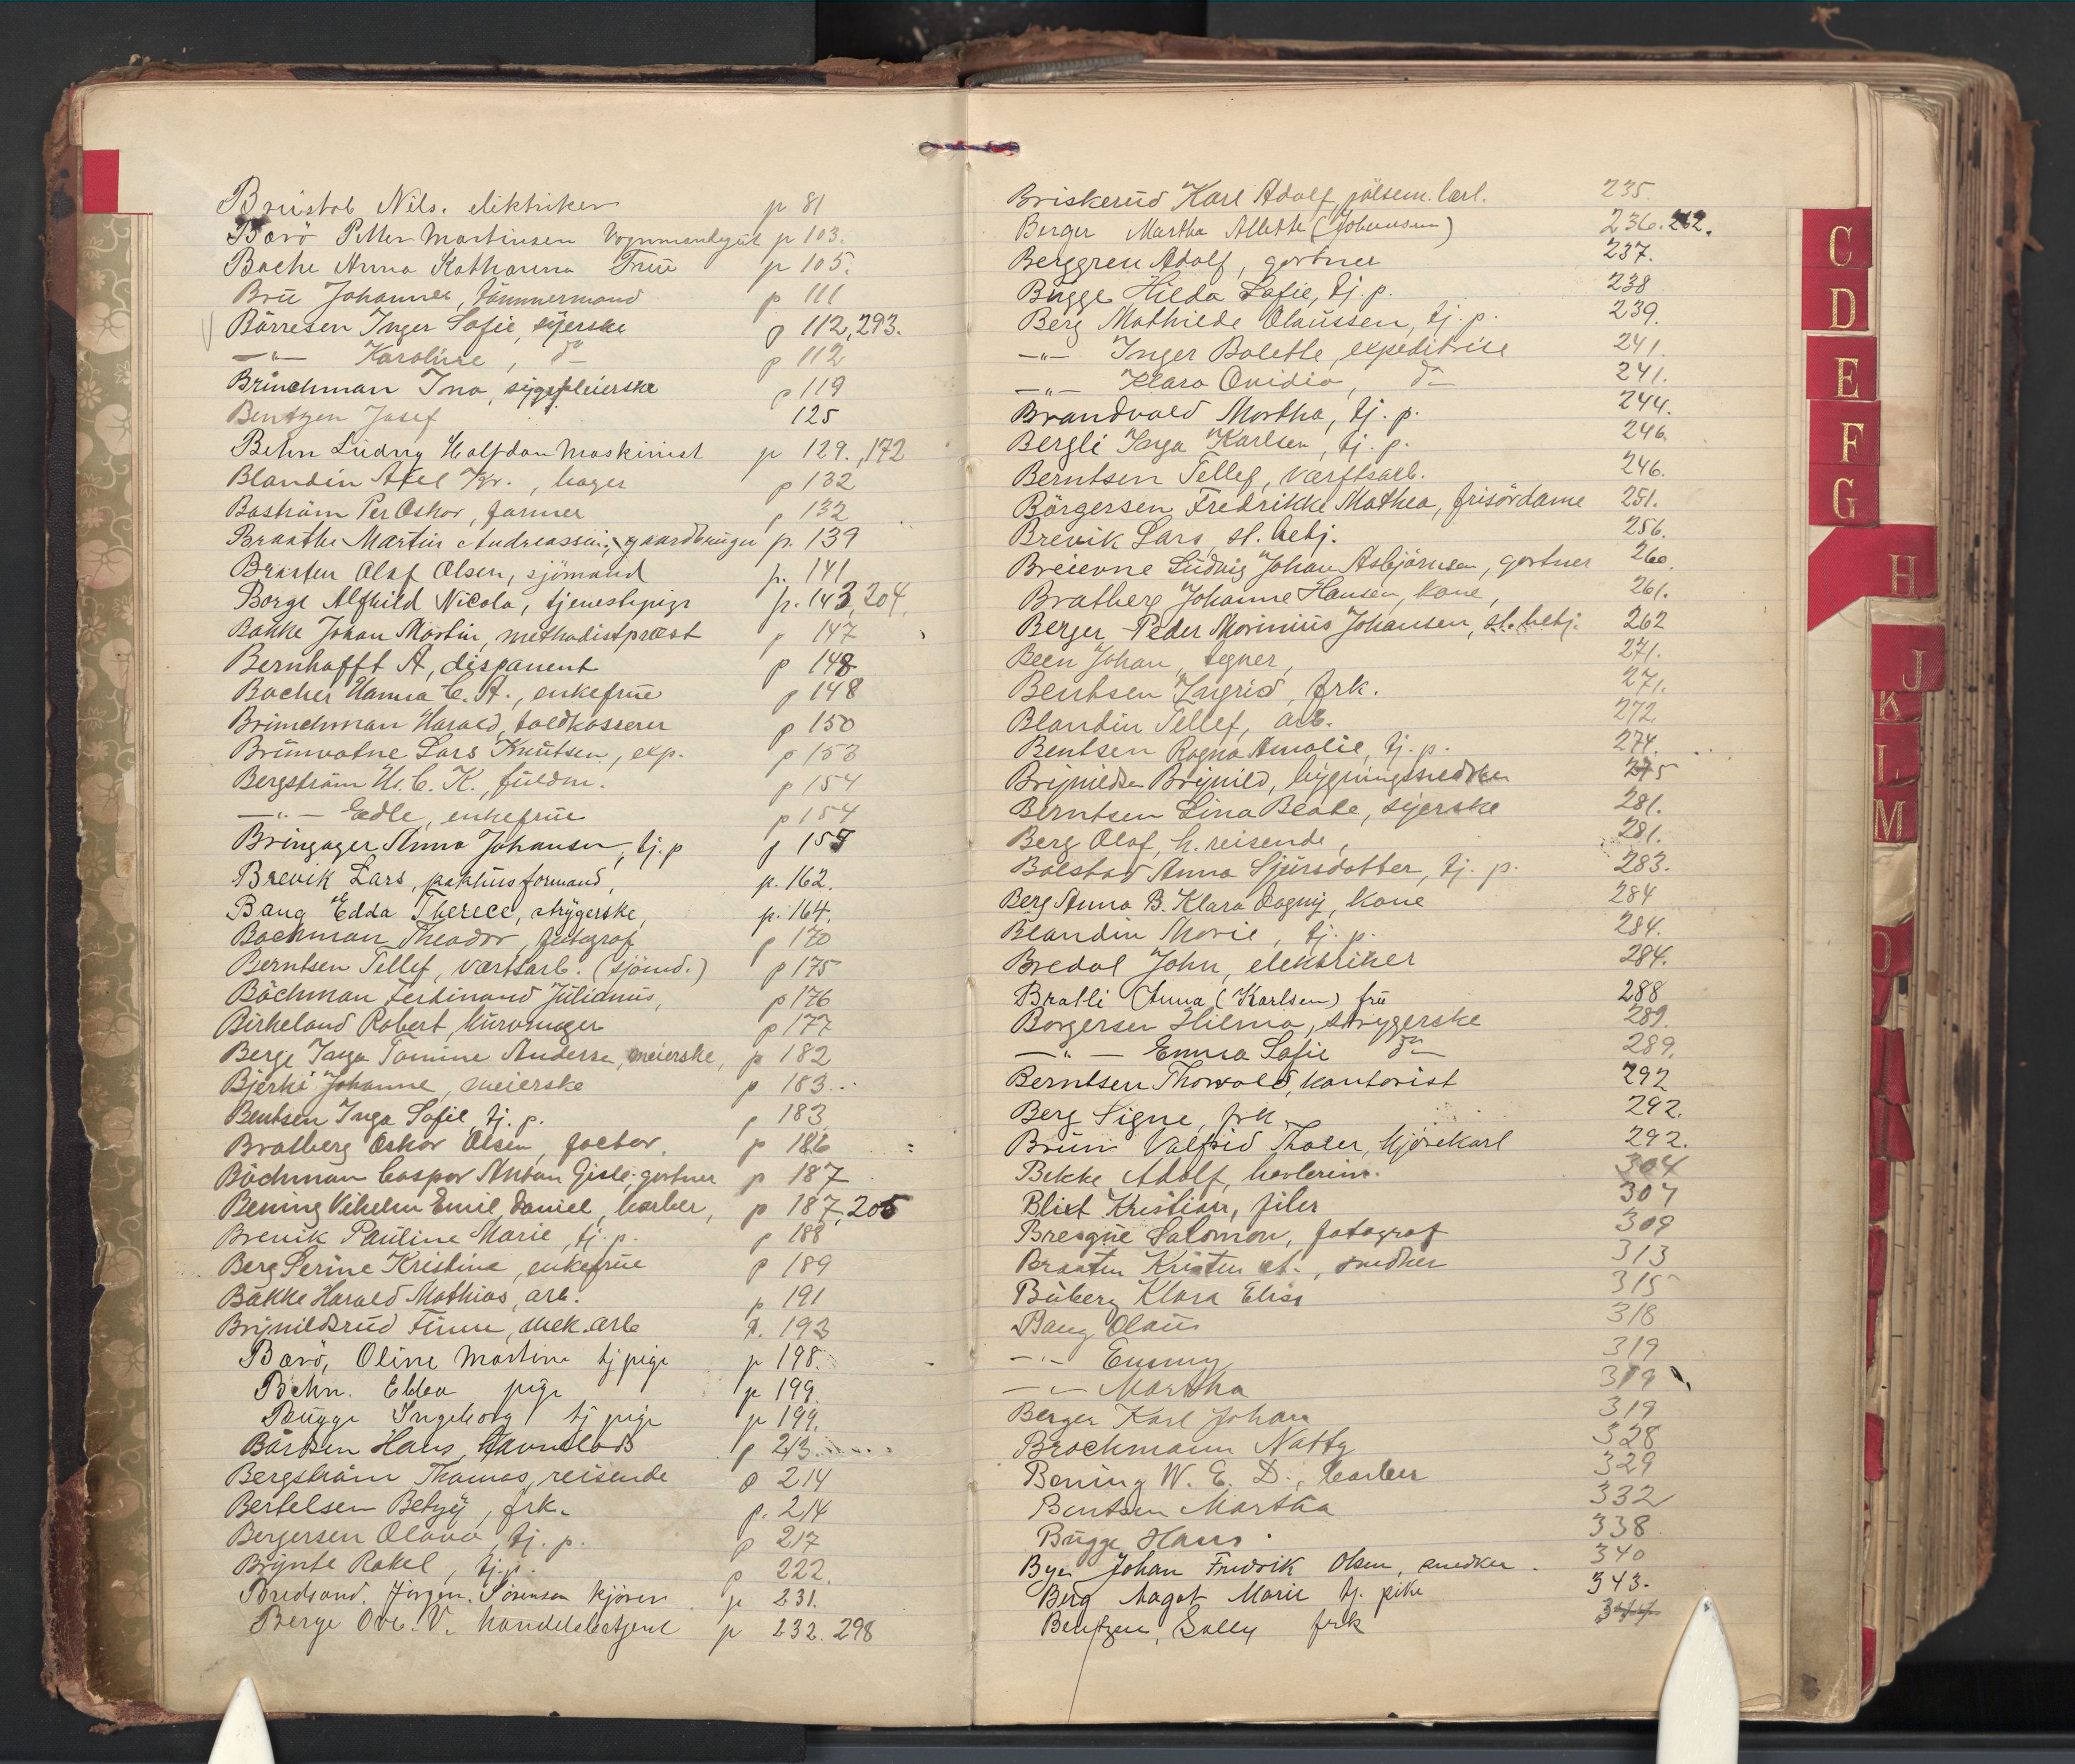 Bruistol Nils. elektriker p 81
Barö Petter Martinsen Vognmandsgut p 103.
Bache Anna Katharina Frue p 105.
Bru Johannes, tömmermand p 111
Börresen Inger Sofie, syerske p 112, 293.
—"— Karoline, do p 112
Brinchman Ina, sygepleierske p 119
Bentzen Josef 125
Behn Ludvig Halfdan Maskinist p 129., 172
Blandin Axel Kr., bager p 132
Boström Per Oskar, former p 132
Braathe Martin Andreassen, gaardbruger p. 139
Braaten Olaf Olsen, sjömand p. 141
Borge Alfhild Nicola, tjenestepige p. 143, 204.
Bakke Johan Martin, methodistpræst p 147
Bernhofft A, disponent p 148
Bocher Hanna C. A., enkefrue p 148
Brinchman Harald, toldkasserer p 150
Brunvatne Lars Knutsen, exp. p 153
Bergström H. C. K., fuldm. p 154
—"— Edle, enkefrue p 154
Bringager Anna Johansen, tj. p p 157
Brevik Lars, pakhusformand, p. 162.
Bang Edda Therece, strygerske, p. 164.
Bachman Theodor, fotograf p 170
Berntsen Tellef, værftsarb. (sjömd.) p 175
Böchman Ferdinand Julianus, p 176
Birkeland Robert, kurvmager p 177
Berge Inga Tomine Anderse, meierske, p 182
Bjerke Johanne, meierske p 183..
Bentsen Inga Sofie, tj. p. p 183
Bratberg Oskar Olsen, faktor. p 186
Böchman Caspar Anton Gisle, gartner p 187
Bening Vihelm Emil Daniel, barber, p 187, 205
Brevik Pauline Marie, tj. p. p 188
Berg Serine Kristine, enkefrue p 189
Bakke Harald Mathias, arb. p 191
Brynildsrud Finn, mek. arb p. 193
Barö, Oline Martine tj pige p 198.
Behn. Ebba pige p 199.
Bugge Ingeborg tj pige p 199.
Bårdsen Hans, havnelods p 213.
Bergström Thomas, reisende p 214
Bertelsen Betzy, frk. p. 214
Bergersen Olava, tj. p. p 217
Brynte Rakel, tj. p. p 222.
Bredsand. Jörgen. Sörensen kjörer p 231.
Berge Ove. V. Handelsbetjent p 232. 298
Briskerud Karl Adolf, pölsem. lærl. 235.
Berger Martha Alette (Johansen) 236. 262.
Berggren Adolf, gartner 237.
Bugge Hilda Sofie, tj. p. 238
Berg Mathilde Olaussen, tj. p. 239.
—"— Inger Bolette, expeditrice 241.
—"— Klara Ovidia, do 241.
Brandvold Martha, tj. p. 244.
Bergli Inga Karlsen, tj. p. 246.
Berntsen Tellef, værftsarb. 246.
Börgersen Fredrikke Mathea, frisördame 251.
Brevik Lars, st. betj. 256.
Breievne Ludvig Johan Asbjörnsen, gartner 260.
Bratberg Johanne Hansen, kone, 261.
Berger Peder Marinius Johansen, st. betj. 262
Been Johan, tegner, 271.
Bentsen Ingrid, frk. 271.
Blandin Tellef, arb. 272
Bentsen Ragna Amalie, tj. p. 274.
Brynildsen Brynild, bygningssnedker 275
Berntsen Lina Beate, syerske 281.
Berg Olaf, h. reisende, 281.
Bolstad Anna Sjursdotter, tj. p. 283.
Berg Anna B. Klara Dagny, kone 284
Blandin Marie, tj. p. 284.
Bredal John, elektriker 284.
Bratli Anna (Karlsen) frü 288
Borgersen Hilma, strygerske 289.
—"— Emma Sofie do 289.
Berntsen Thorvald, kontorist 292
Berg Signe, frk. 292.
Bruun Valfrid Tholer, kjörekarl 292.
Bekke Adolf, havlerinr. 304
Blixt Kristian, filer 307
Bresque Salomon, fotograf 309
Braaten Kristen A., snedker 313
Buberg Klara Elise 315
Bang Olaus 318
—"— Emmy 319
—"— Martha 319
Berger Karl Johan 319
Brochmann Natty 328
Bening W. E. D., barber 329
Bentsen Martha 332
Bugge Hans. 338
Bye Johan Fredrik Olsen, snedker. 340
Berg Aagot Marie tj. pike 343.
Bentzen, Solly frk 344
C
D
E
F
G
H
J
K
L
M
O